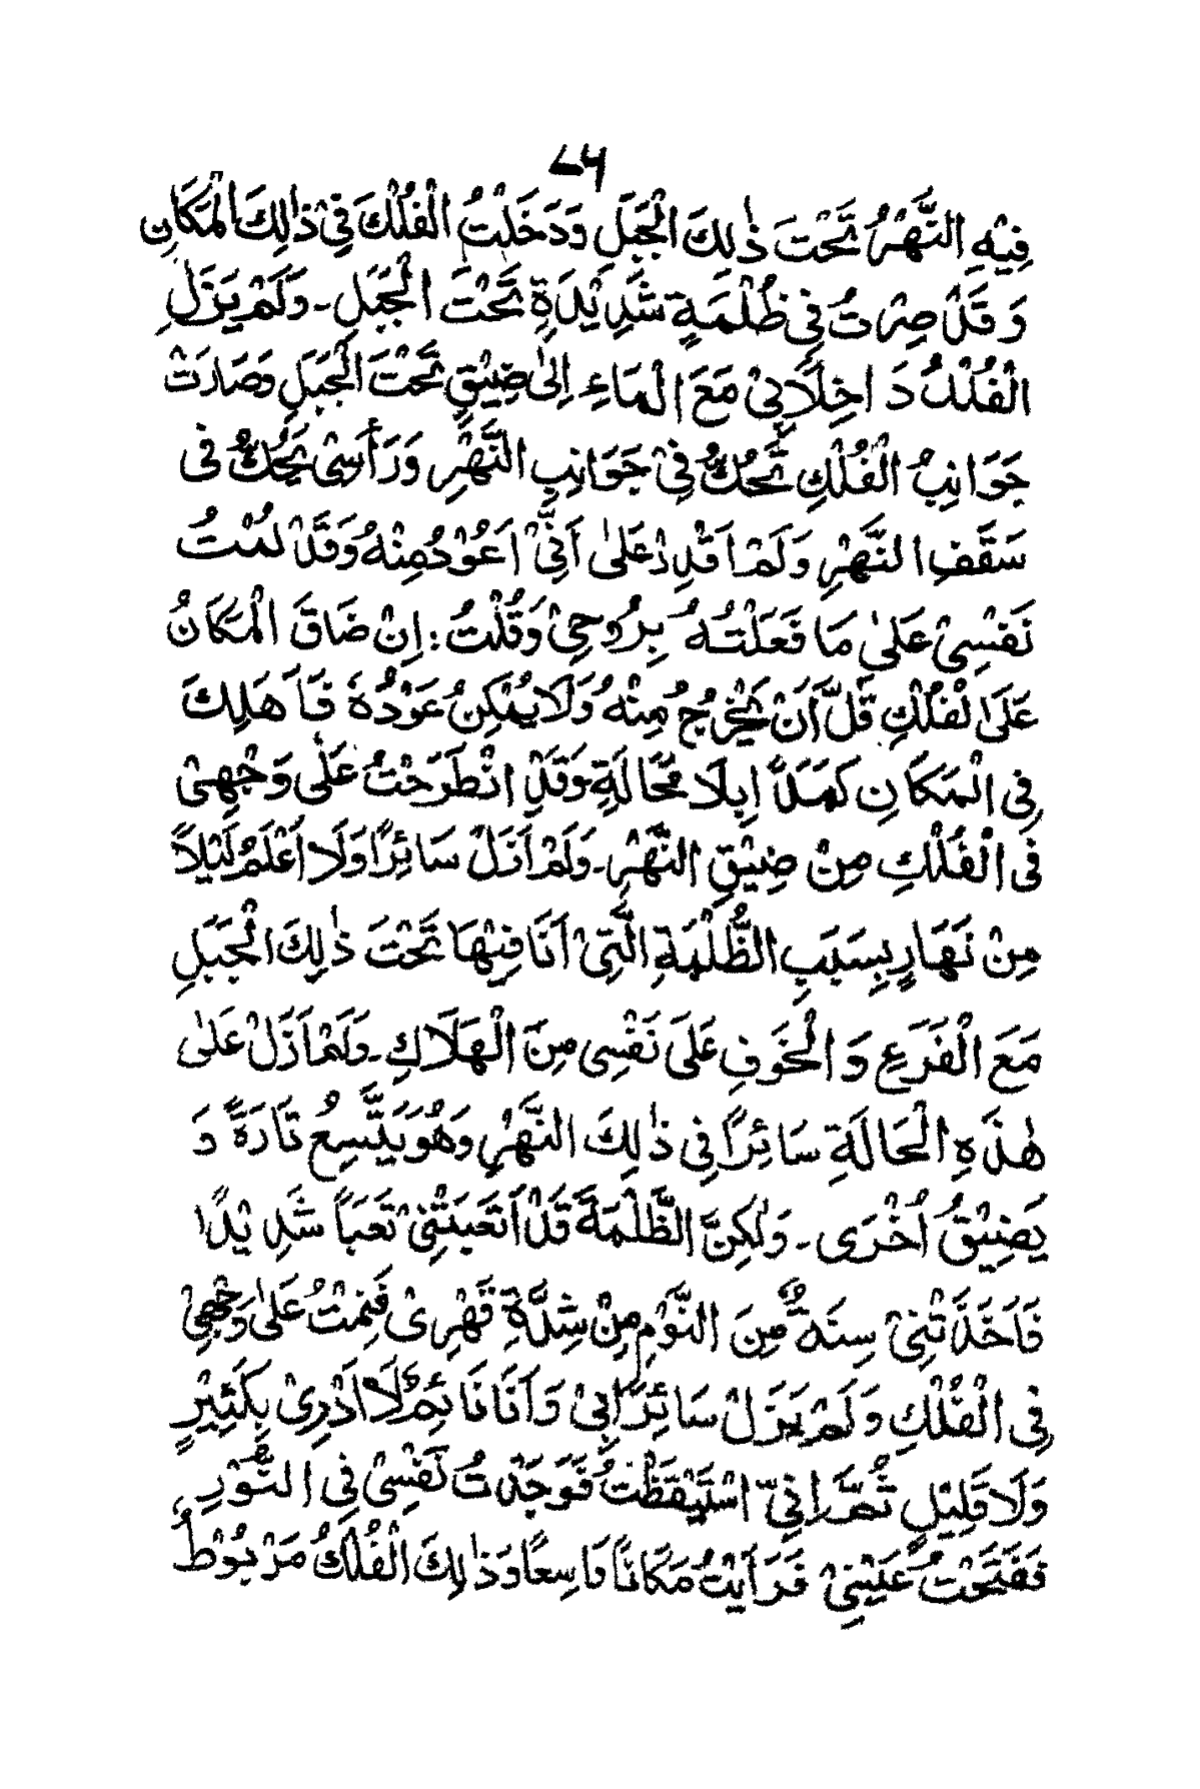 ۷۶
فِيْهِ النَّهْرُ تَحْتَ ذٰلِكَ الْجَبَلِ وَدَخَلْتُ الْفُلْكَ فِيْ ذٰلِكَ الْمَكَانِ
وَقَدْ صِرْتُ فِي ظُلْمَةٍ شَدِيْدَةٍ تَحْتَ الْجَبَلِ۔ وَلَمْ يَزَلِ
الْفُلْكُ دَاخِلًا بِيْ مَعَ الْمَاءِ إِلىٰ ضِيْقٍ تَحْتَ الْجَبَلِ وَصَارَتْ
جَوَانِبُ الْفُلْكِ تَحُكُّ فِيْ جَوَانِبِ النَّهْرِ وَرَأْسِيْ يَحُكُّ فى
سَقَفِ النَّهْرِ وَلَمْ اَقْدِرْ عَلىٰ اَنِّيْ اَعُوْدُ مِنْهُ وَقَدْ لُمْتُ
نَفْسِيْ عَلىٰ مَا فَعَلْتُهُ بِرُوحِيْ وَقُلْتُ: اِنْ ضَاقَ الْمَكَانُ
عَلَى الْفُلْكِ قَلَّ اَنْ يَخْرُجَ مِنْهُ وَلَا يُمْكِنُ عَوْدُهٗ فَاَهَلِكَ
فِى الْمَكَانِ كَمَدًا بِلَا مُحَالَةٍ وَقَدِ انْطَرَحْتُ عَلٰى وَجْهِيْ
فى الْفُلْكِ مِنْ ضِيْقِ النَّهْرِ۔ وَلَمْ اَزَلْ سَائِرًا وَلَا اَعْلَمُ لَيْلًا
مِنْ نَهَارٍ بِسَبَبِ الظُّلْمَةِ الَّتِيْ اَنَا فِيْهَا تَحْتَ ذٰلِكَ الْجَبَلِ
مَعَ الْفَزَعِ وَالْخَوفِ عَلَى نَفْسِى مِنَ الْهَلَاكِ۔ وَلَمْ اَزَلْ عَلىٰ
هٰذَهِ الْحَالَةِ سَائِرًا فِى ذٰلِكَ النَّهْرِ وَهُوَ يَتَّسِعُ تَارَةً وَ
يَضِيْقُ اُخْرَى۔ وَلٰكِنَّ الظُّلْمَةَ قَدْ اَتَعَبَتْنِيْ تَعَبًا شَدِيْدًا
فَاَخَذَتْنِيْ سِنَةٌ مِّنَ النَّوْمِ مِنْ شِدَّةِ قَهْرِىْ فَنِمْتُ عَلىٰ وَجْهِيْ
فِى الْفُلْكِ وَلَمْ يَزَلْ سَائِرًا بِيْ وَاَنَا نَائِمٌ لَا اَدْرِىْ بِكَثِيْرٍ
وَلَا قَلِيْلٍ ثُمَّ اِنِّيْ اسْتَيْقَظْتُ فَوَجَدْتُ نَفْسِيْ فِى النُّوْرِ
فَفَتَحْتُ عَيْنِيْ فَرَاَيْتُ مَكَانًا وَاسِعًا وَذٰلِكَ الْفُلْكُ مَرْبُوْطٌ